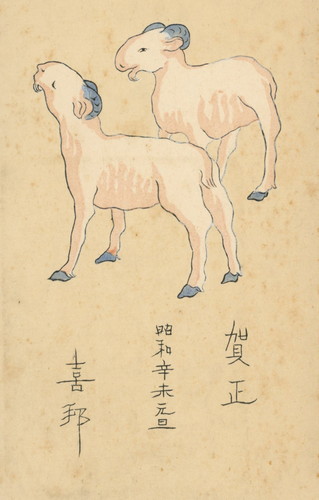 賀正
昭和辛未元旦
喜邦